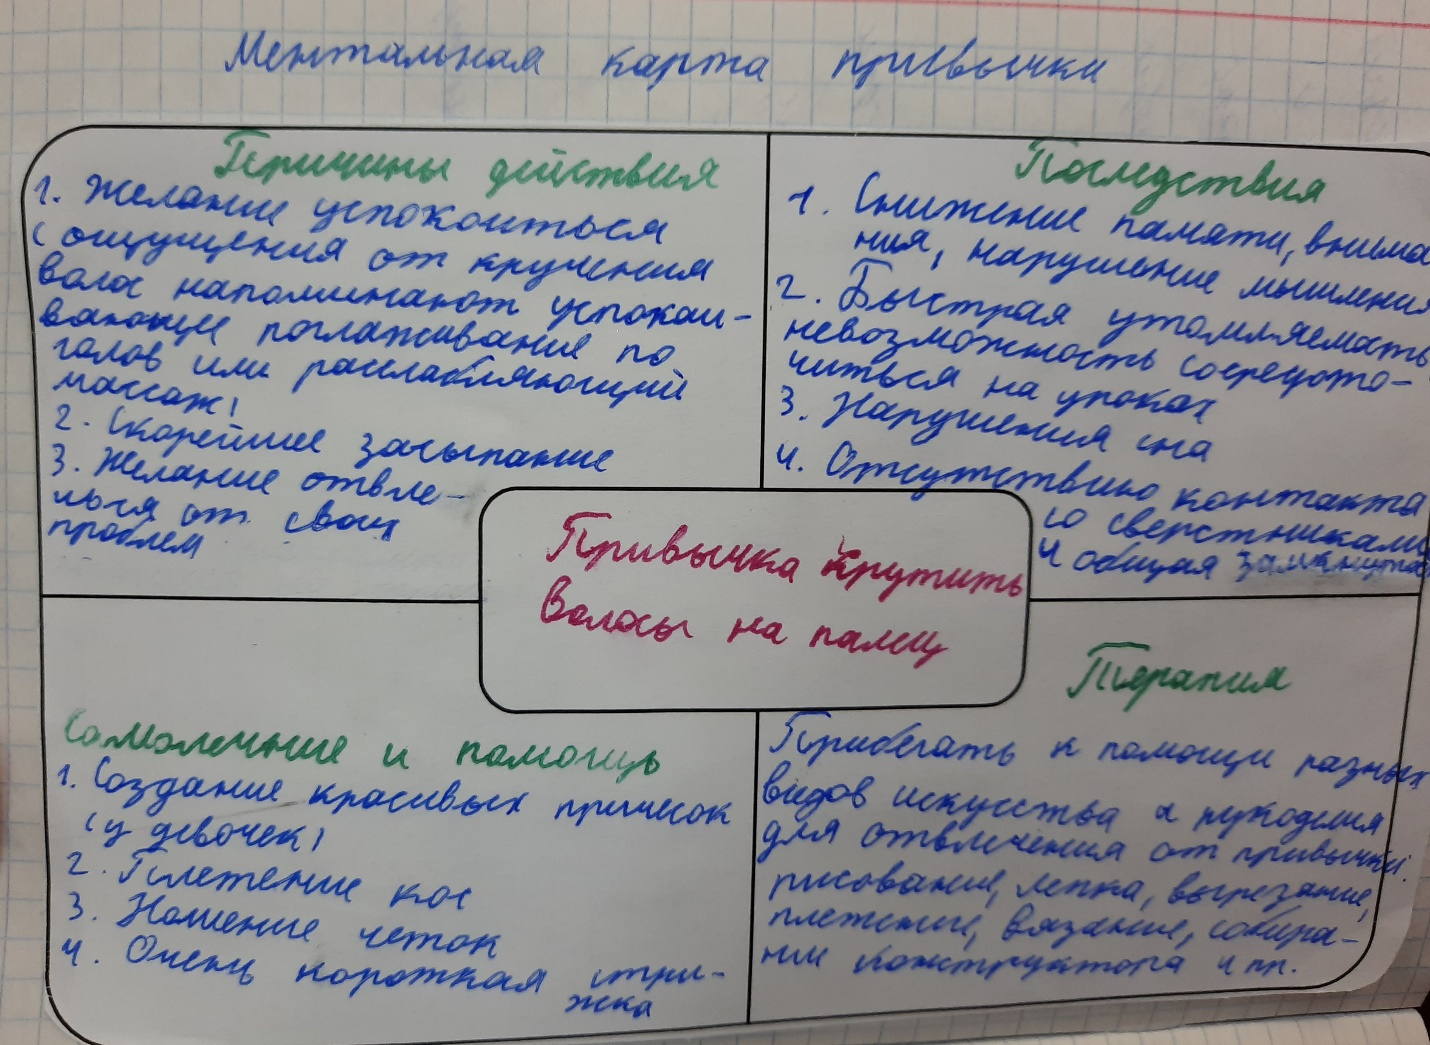 Ментальная карта привычки
Причины действия
1. Желание успокоиться
(ощущения от кручения
волос напоминают успокаи-
вающие поглаживание по
голов или расслабляющий
массаж)
2. Скорейшие засыпание
3. Желание отвле-
от своих
проблем
Последствия
1. Снижение памяти, внима
ния, нарушение мышления
2. Быстрая утомляемость
невозможность сосредото-
читься на уроках
3. Нарушения сна
4. Отсутствию контакта
со сверстниками
и общая замкнута
Привычка крутить
волосы на палец
Самолечение и помощь
1. Создание красивых причесок
(у девочек)
2. Плетение кос
3. Ношение четок
4. Очень короткая стри-
жка
Терапия
Прибегать к помощи разных
видов искусства и рукоделия
для отвлечения от привычки:
рисование, лепка, вырезание,
плетение, вязание, собира-
нии конструктора и пр.